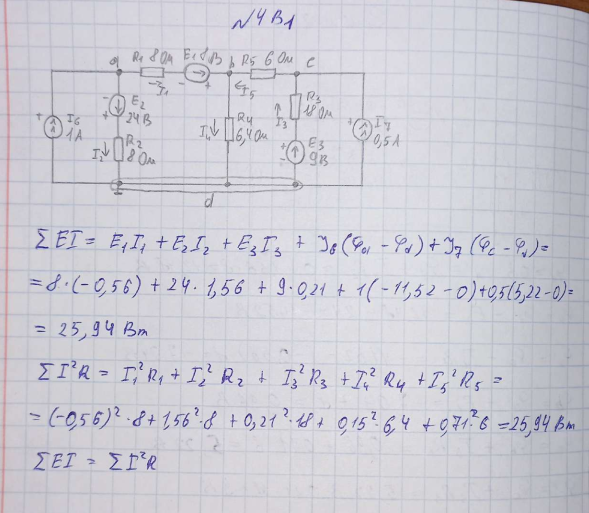 №4 В1
a R1 8 Ом E1 8 В b R5 6 Ом c
I1 I5
I6 1А E2 24 В R2 8 Ом I2 I4 R4 6,4 Ом I3 R3 18 Ом E3 9В I7 0,5А
d
ΣEI = E₁I₁ + E₂I₂ + E₃I₃ + J₆(φₐ - φ_d) + J₇(φ_c - φ_d) =
= 8·(-0,56) + 24·1,56 + 9·0,21 + 1(-11,52 - 0) + 0,5(5,22 - 0) =
= 25,94 Вт
ΣI²R = I₁²R₁ + I₂²R₂ + I₃²R₃ + I₄²R₄ + I₅²R₅ =
= (-0,56)²·8 + 1,56²·8 + 0,21²·18 + 0,15²·6,4 + 0,71²·6 = 25,94 Вт
ΣEI = ΣI²R